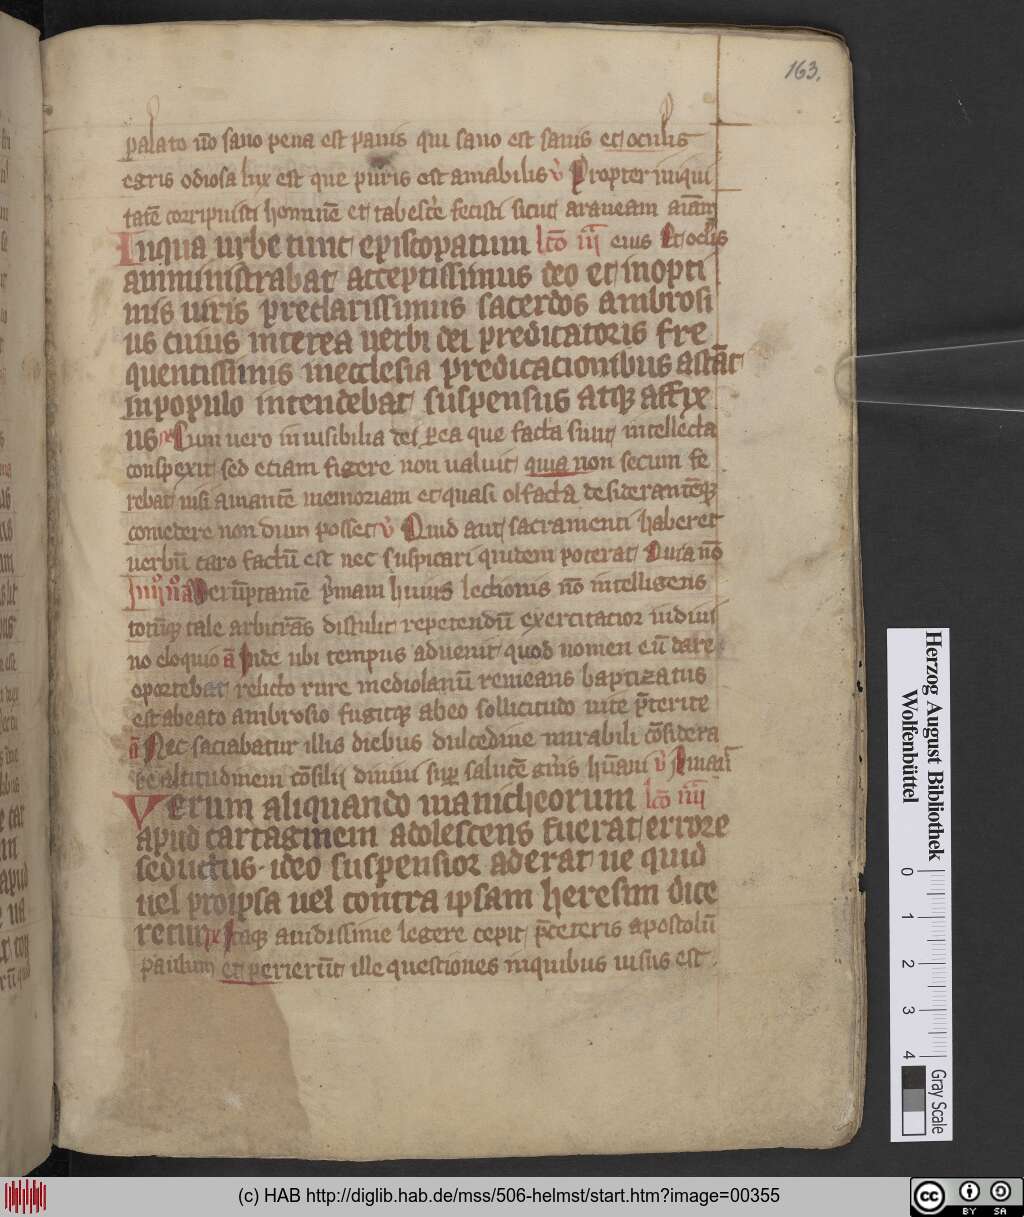 163.
palato no̅ sano pena est panis qui sano est sanis et oculis
egris odiosa lux est que puris est amabilis v̉ Propter iniqui
tate̅ corripuisti homine̅ et tabesce̅ fecisti sicut araneam aia̅m
Inqua urbe tunc episcopatum lc̅o iii eius Et oc̅lis
amministrabat acceptissimus deo et inopti
mis uiris preclarissimus sacerdos ambrosi
us cuius interea uerbi dei predicatoris fre
quentissimis inecclesia predicacionibus asta̅t
inpopulo intendebat suspensus atqꝫ affix
us Cum uero inuisibilia dei per ea que facta sunt intellecta
conspexit sed etiam figere non ualuit quia non secum fe
rebat nisi amante̅ memoriam et quasi olfacta desiderante̅qꝫ
comedere non dum posset v̉ Quid aut sacramenti haberet
uerbu̅ caro factu̅ est nec suspicari quidem poterat Quia no̅
Verumptame̅ p̅mam huius lectionis no̅ intelligens
totu̅qꝫ tale arbitra̅s distulit repetendu̅ exercitatior indiui
no eloquio a̅ Inde ubi tempus aduenit quod nomen eu̅ dare
oportebat relicto rure mediolanu̅ remeans baptizatus
est abeato ambrosio fugitqꝫ abeo sollicitudo uite p̅terite
a̅ Nec saciabatur illis diebus dulcedine mirabili co̅sidera
re altitudinem co̅silij diuini sup̱ salute̅ gn̅is hu̅ani v̉
Verum aliquando manicheorum lc̅o iiii
apud cartaginem adolescens fuerat errore
seductus ideo suspensior aderat ne quid
uel proipsa uel contra ipsam heresim dice
retur Itaqꝫ auidissime legere cepit p̅ceteris apostolu̅
paulum et perieru̅t ille questiones inquibus uisus est
Herzog August Bibliothek
Wolfenbüttel
0 1 2 3 4
Gray Scale
(c) HAB http://diglib.hab.de/mss/506-helmst/start.htm?image=00355
cc BY SA